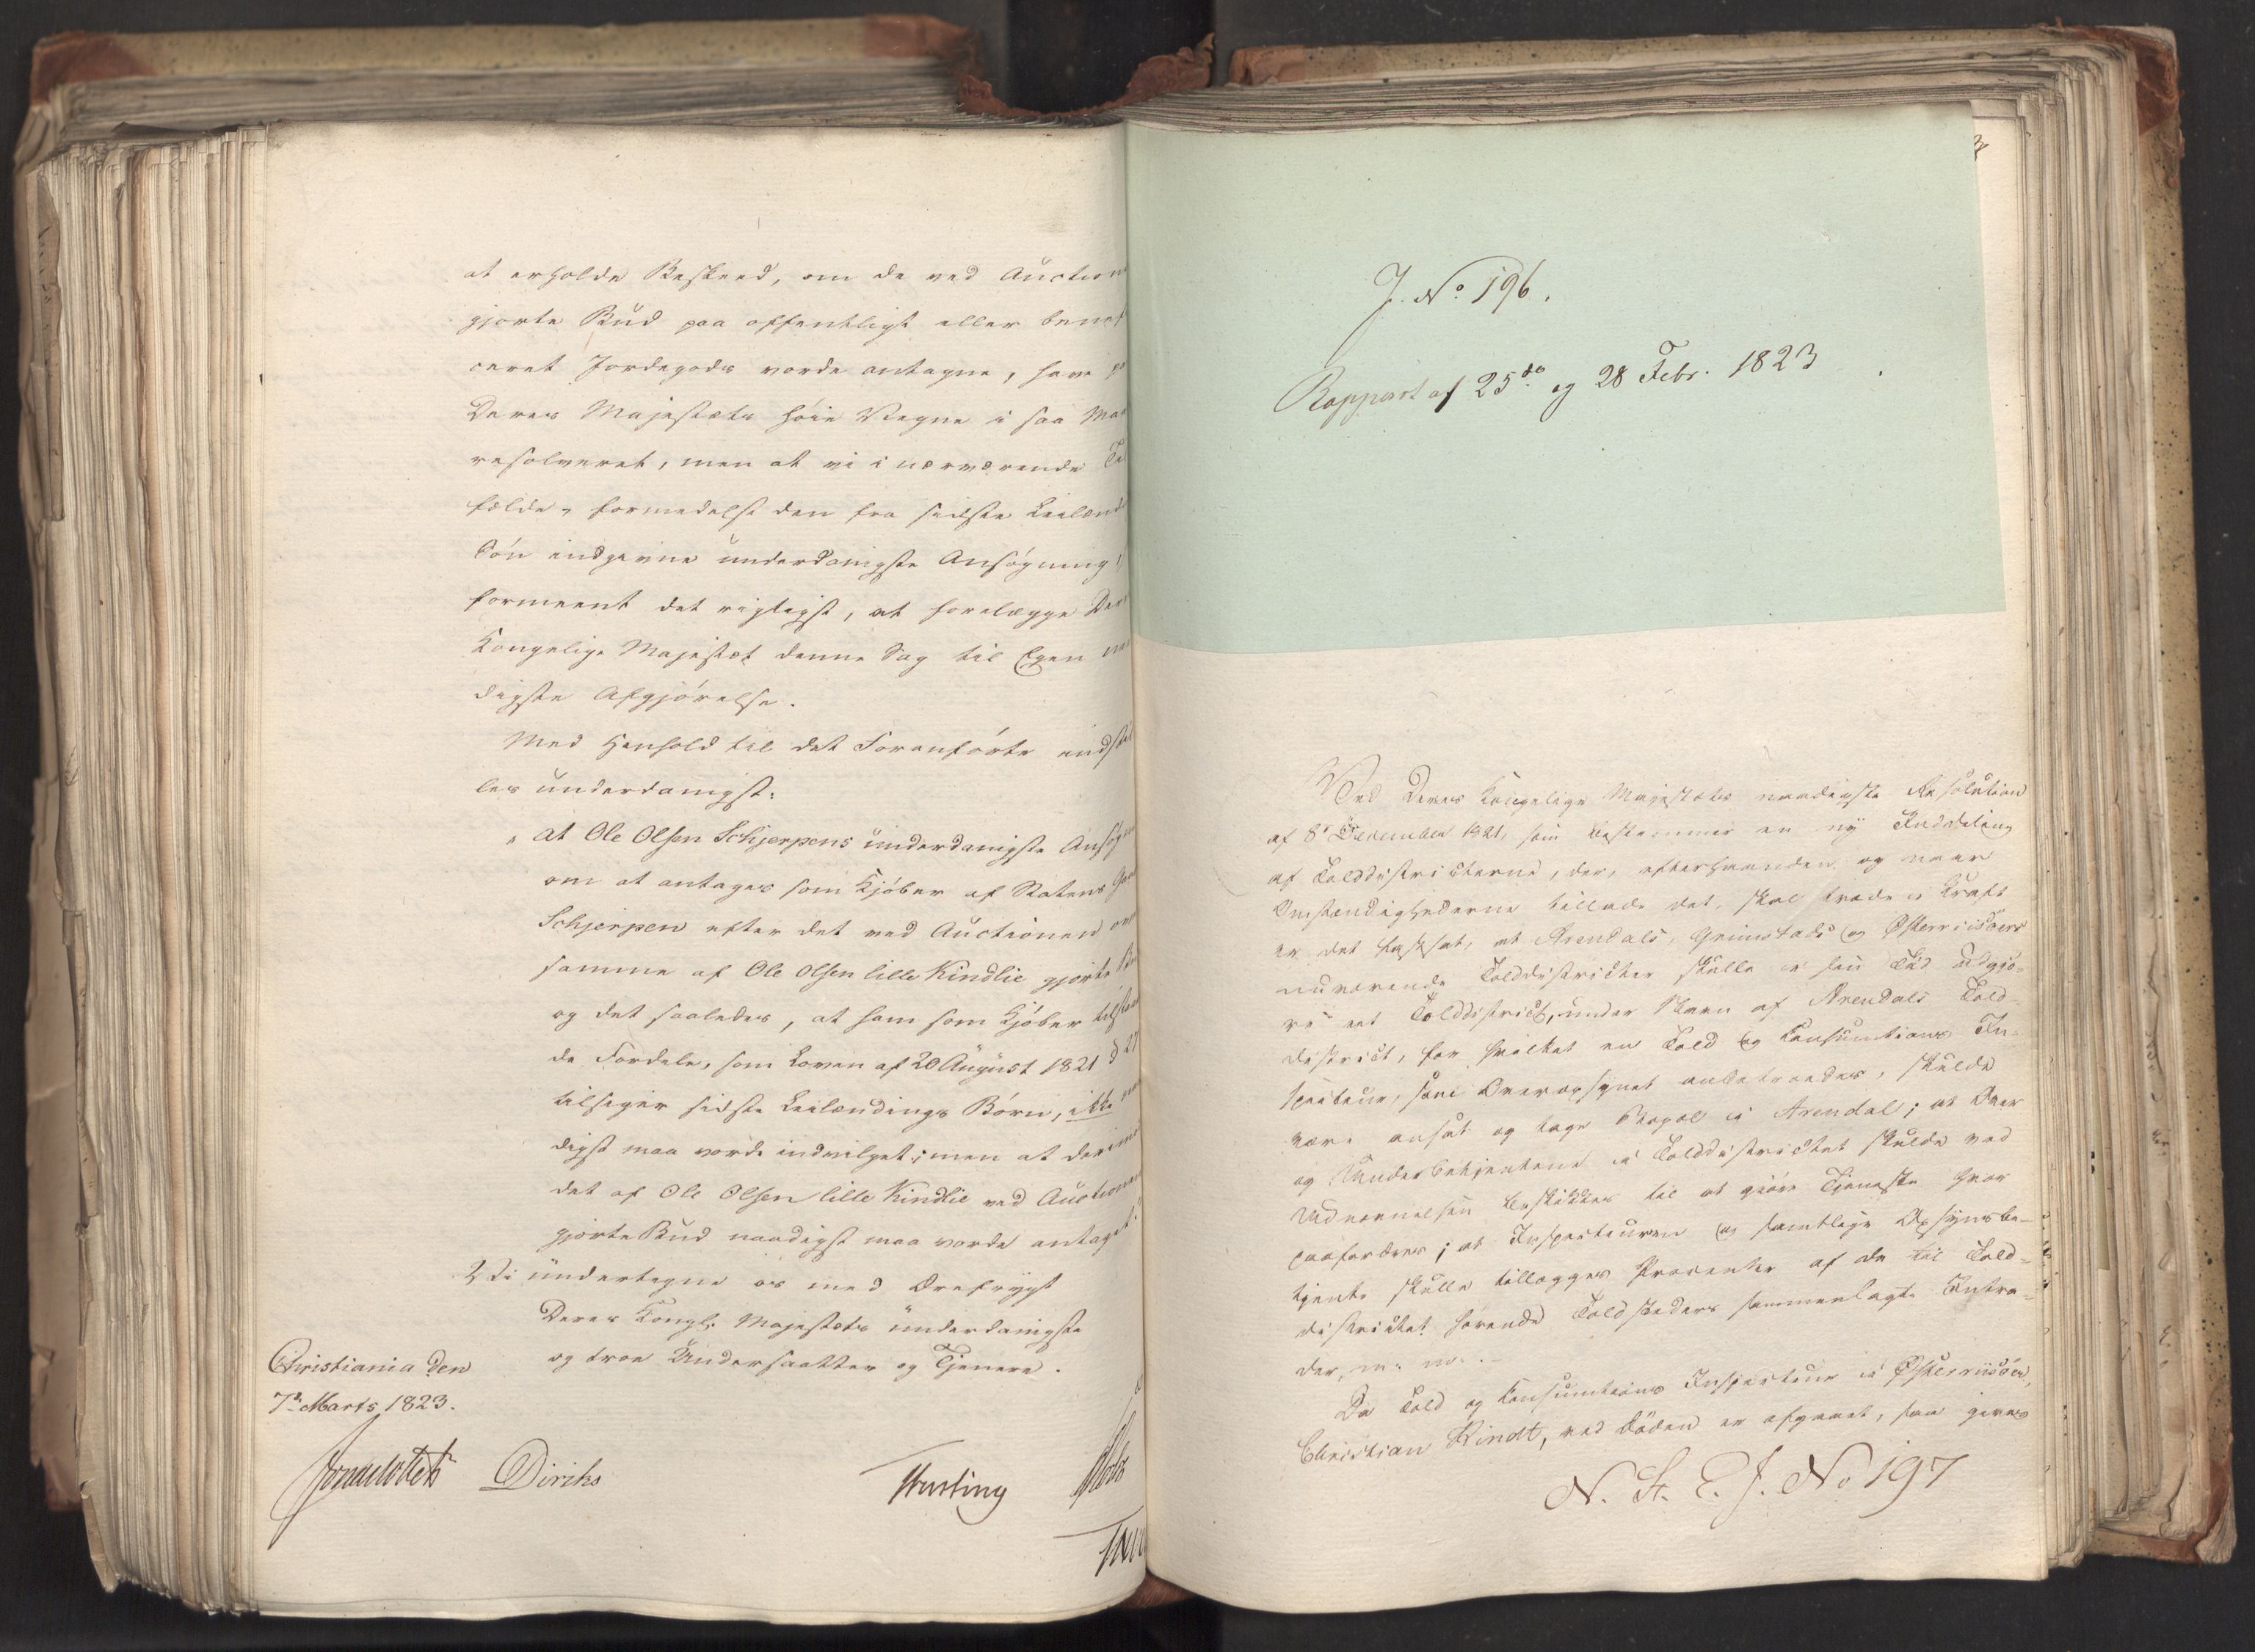 at erholde Beskeed, om de ved Auction
gjorte Bud paa offentligt eller benef
ceret Jordegods vorde antagne, have
Deres Majestæts høie Vegne i saa Maa
resolveret, men at vi i nærværende Til
fælde, formedelst den fra sidste Leilænd
Søn indgivne underdanigste Ansøgning
formeent det rigtigst, at forelægge Der
Kongelige Majestæt denne Sag til Egen
digste Afgjørelse.
Med Henhold til det Foranførte indstil
les underdanigst:
"at Ole Olsen Schjerpens underdanigste Ansøgn
om at antages som Kjøber af Statens Gaa
Schjerpen efter det ved Auctionen over
samme af Ole Olsen lille Kindlie gjorte Bu
og det saaledes, at ham som Kjøber tilstaa
de Fordele, som Loven af 20 August 1821 § 27
tilsiger sidste Leilændings Børn, ikke
digst maa vorde indvilget; men at derimo
det af Ole Olsen lille Kindlie ved Auctionen
gjorte Bud naadigst maa vorde antaget.
Vi undertegne os med Ærefrygt
Deres Kongl. Majestæts underdanigste
og troe Undersaatter og Tjenere.
Christiania den
7de Marts 1823.
Diriks
J. No 196.
Rapport af 25de og 28 Febr. 1823
Ved Deres Kongelige Majestæts naadigste Resolution
af 8de December 1821, som bestemmer en ny Inddeling
af Tolddistricterne, der, efterhaanden og naar
Omstændighederne tillade det, skal træde i Kraft
er det fastsat, at Arendals, Grimstads og Østerriisøers
nuværende Tolddistricter skulle i sin Tid udgjø-
re eet Tolddistrict, under Navn af Arendals Told-
district, for hvilket en Told og Consumtions In-
specteur, som Overopsynet anbetroedes, skulde
være ansat og tage Bopæl i Arendal; at Over
og Underbetjentene i Tolddistrictet skulde ved
Udnævnelsen beskikkes til at gjøre Tjeneste hvor
paafordres; at Inspecteuren og samtlige Opsynsbe-
tjente skulle tillægges Procenter af de til Told-
districtet hørende Toldsteders sammenlagte Intra-
der, m: m:.-
Da Told og Consumtions Inspecteur i Østerriisøer,
Christian Rindt, ved Døden er afgaaet, saa gives
N. St. E. J. No 197